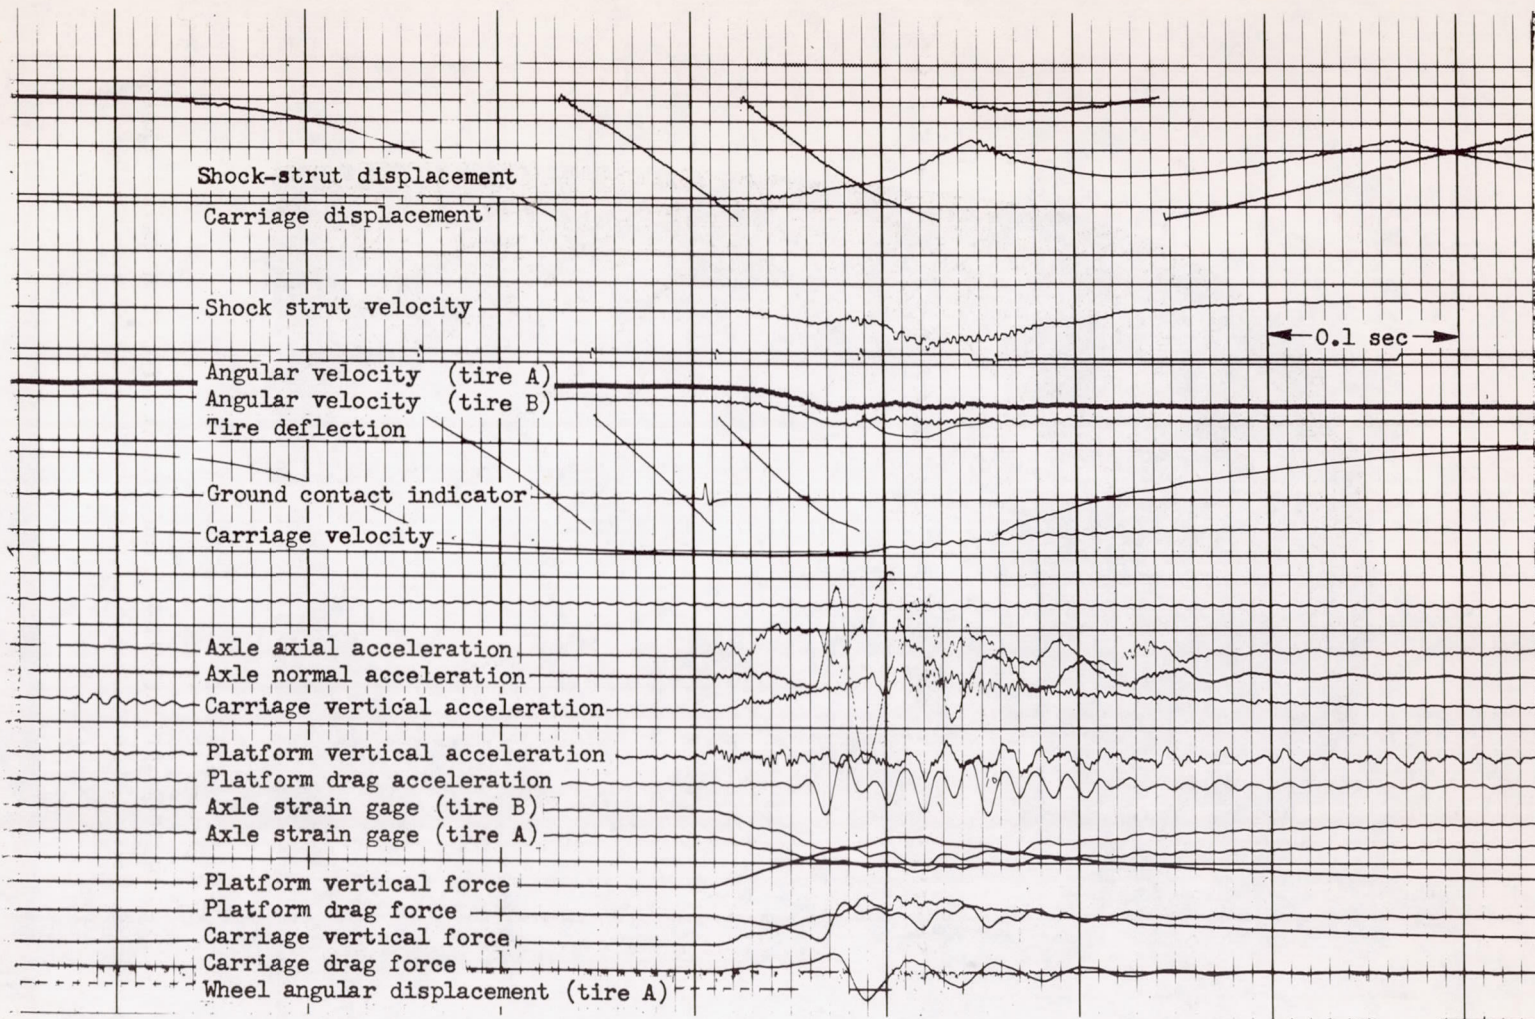 Shock-strut displacement
Carriage displacement
Shock strut velocity
0.1 sec
Angular velocity (tire A)
Angular velocity (tire B)
Tire deflection
Ground contact indicator
Carriage velocity
Axle axial acceleration
Axle normal acceleration
Carriage vertical acceleration
Platform vertical acceleration
Platform drag acceleration
Axle strain gage (tire B)
Axle strain gage (tire A)
Platform vertical force
Platform drag force
Carriage vertical force
Carriage drag force
Wheel angular displacement (tire A)